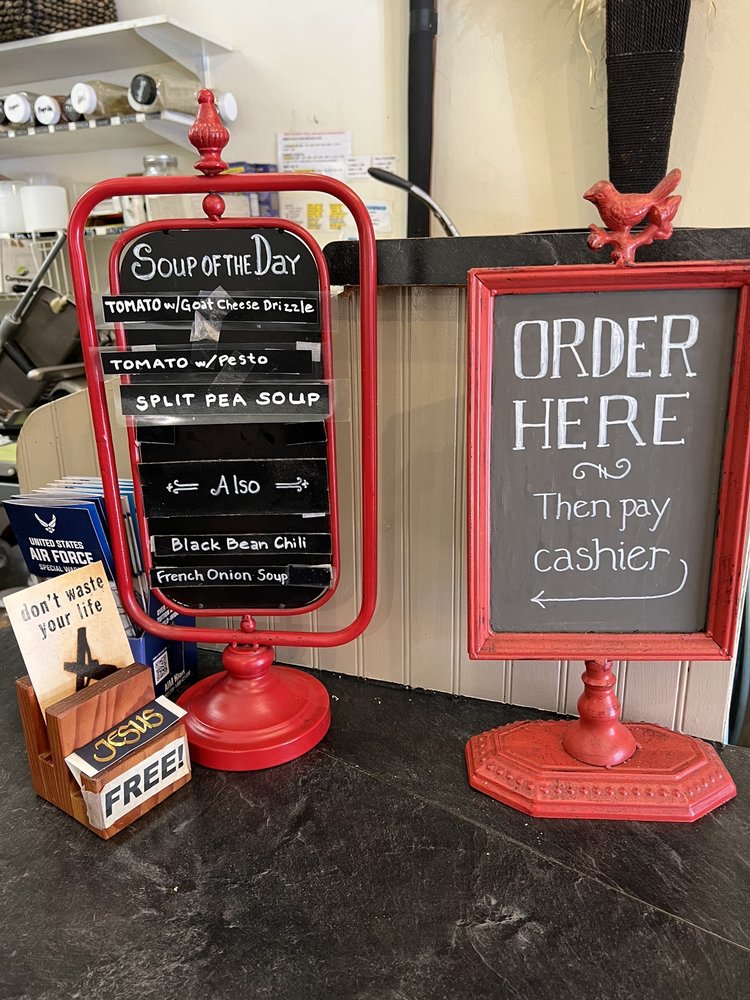 SOUP OF THE DAY
TOMATO w/Goat Cheese Drizzle
TOMATO w/Pesto
SPLIT PEA SOUP
Also
Black Bean Chili
French Onion Soup
ORDER
HERE
Then pay
cashier
UNITED STATES
AIR FORCE
SPECIAL
don't waste
your life
JESUS
FREE!